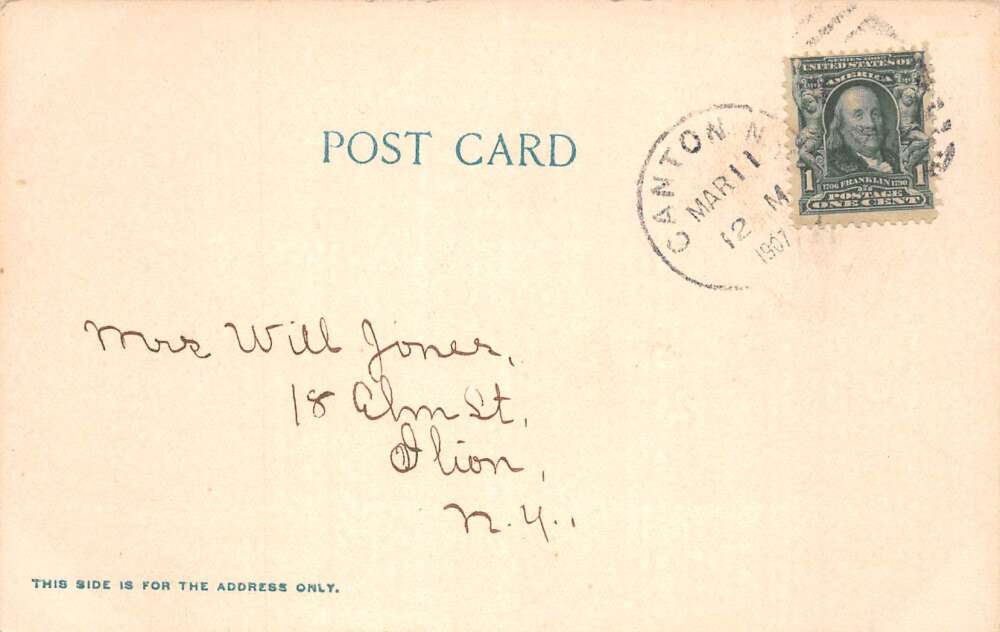 SERIES 1902
UNITED STATES OF
AMERICA
POST CARD
CANTON N
MAR 11
12 M
1907
1 1
1706 FRANKLIN 1790
POSTAGE
ONE CENT
Mrs Will Jones,
18 Elm St,
Ilion,
N.Y.,
THIS SIDE IS FOR THE ADDRESS ONLY.